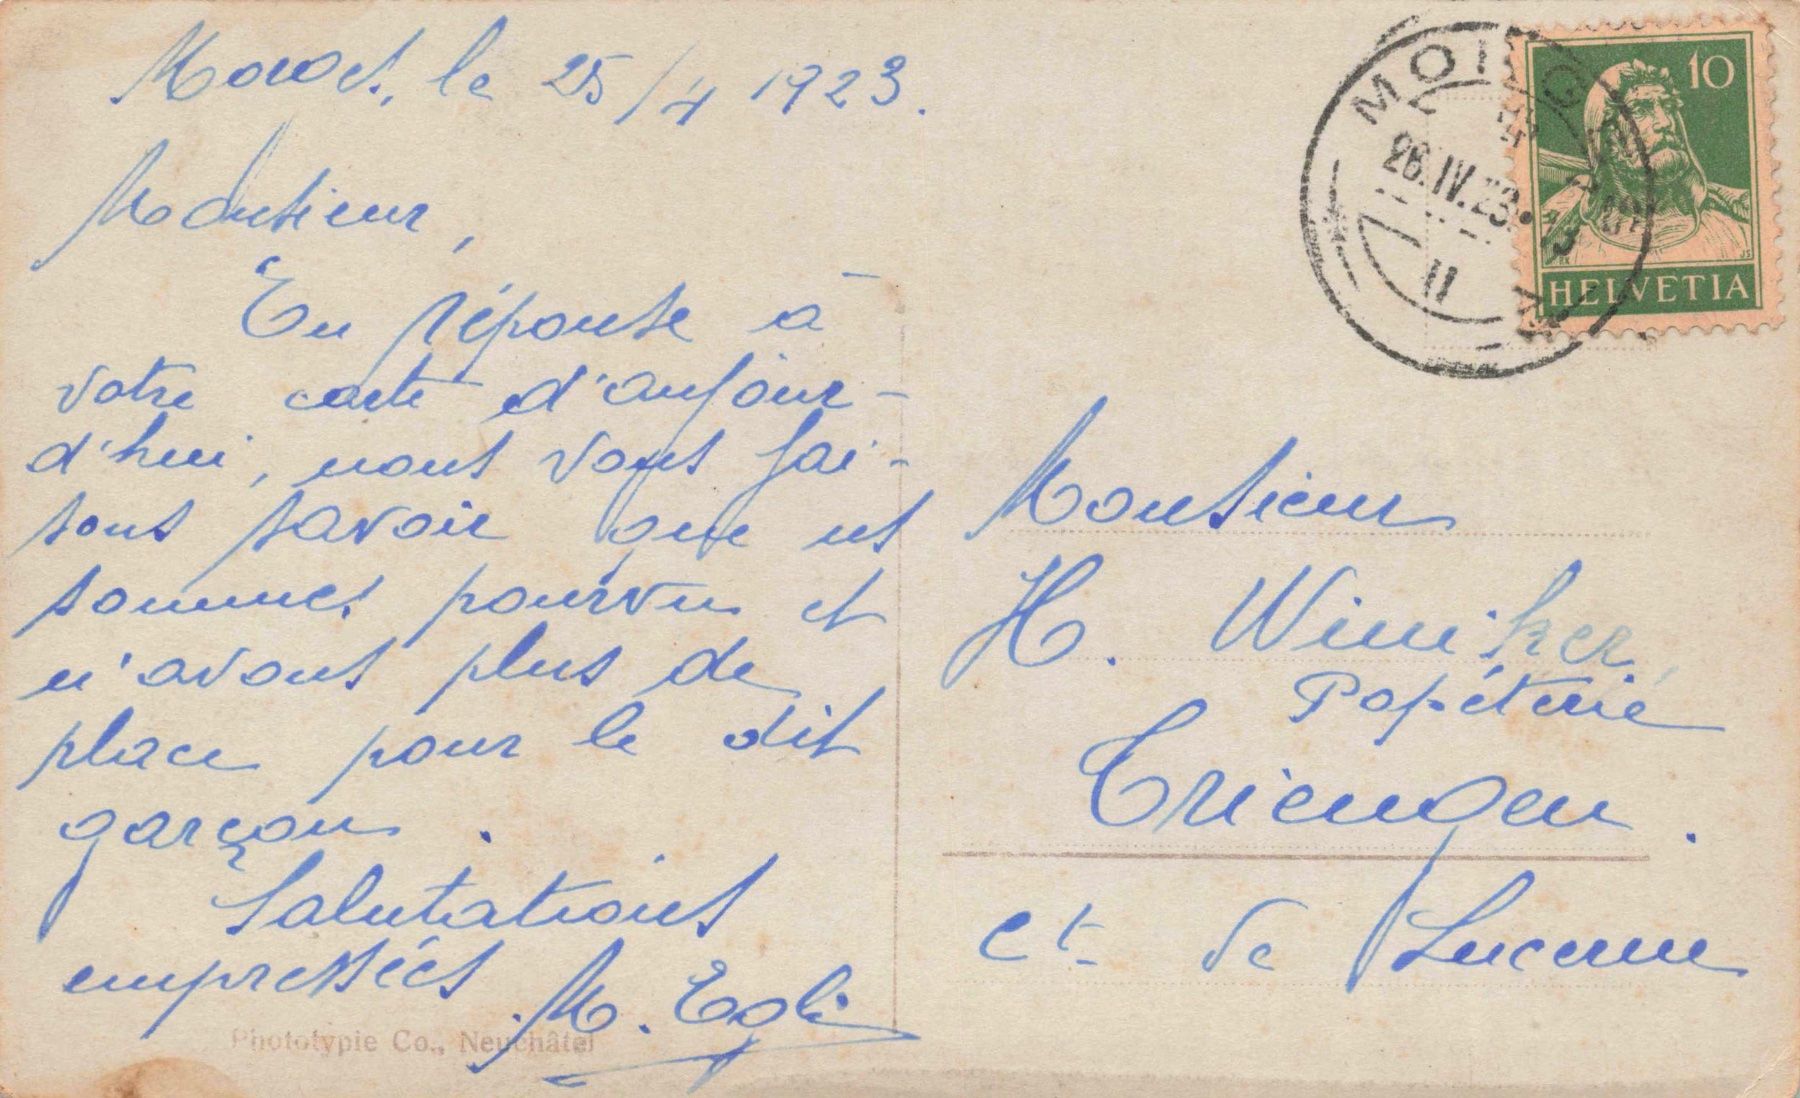 le 25/4 1923.
Monsieur,
En réponse à
votre carte d'aujour-
d'hui, nous vous fai-
sons savoir que ns
sommes pourvu et
n'avons plus de
place pour le dit
garçon.
Salutations
empressées
M. Egli
Phototypie Co., Neuchâtel
26.IV.23.
II
10
HELVETIA
Monsieur
H. Winiker,
Papéterie
Triengen.
Ct. de Lucerne